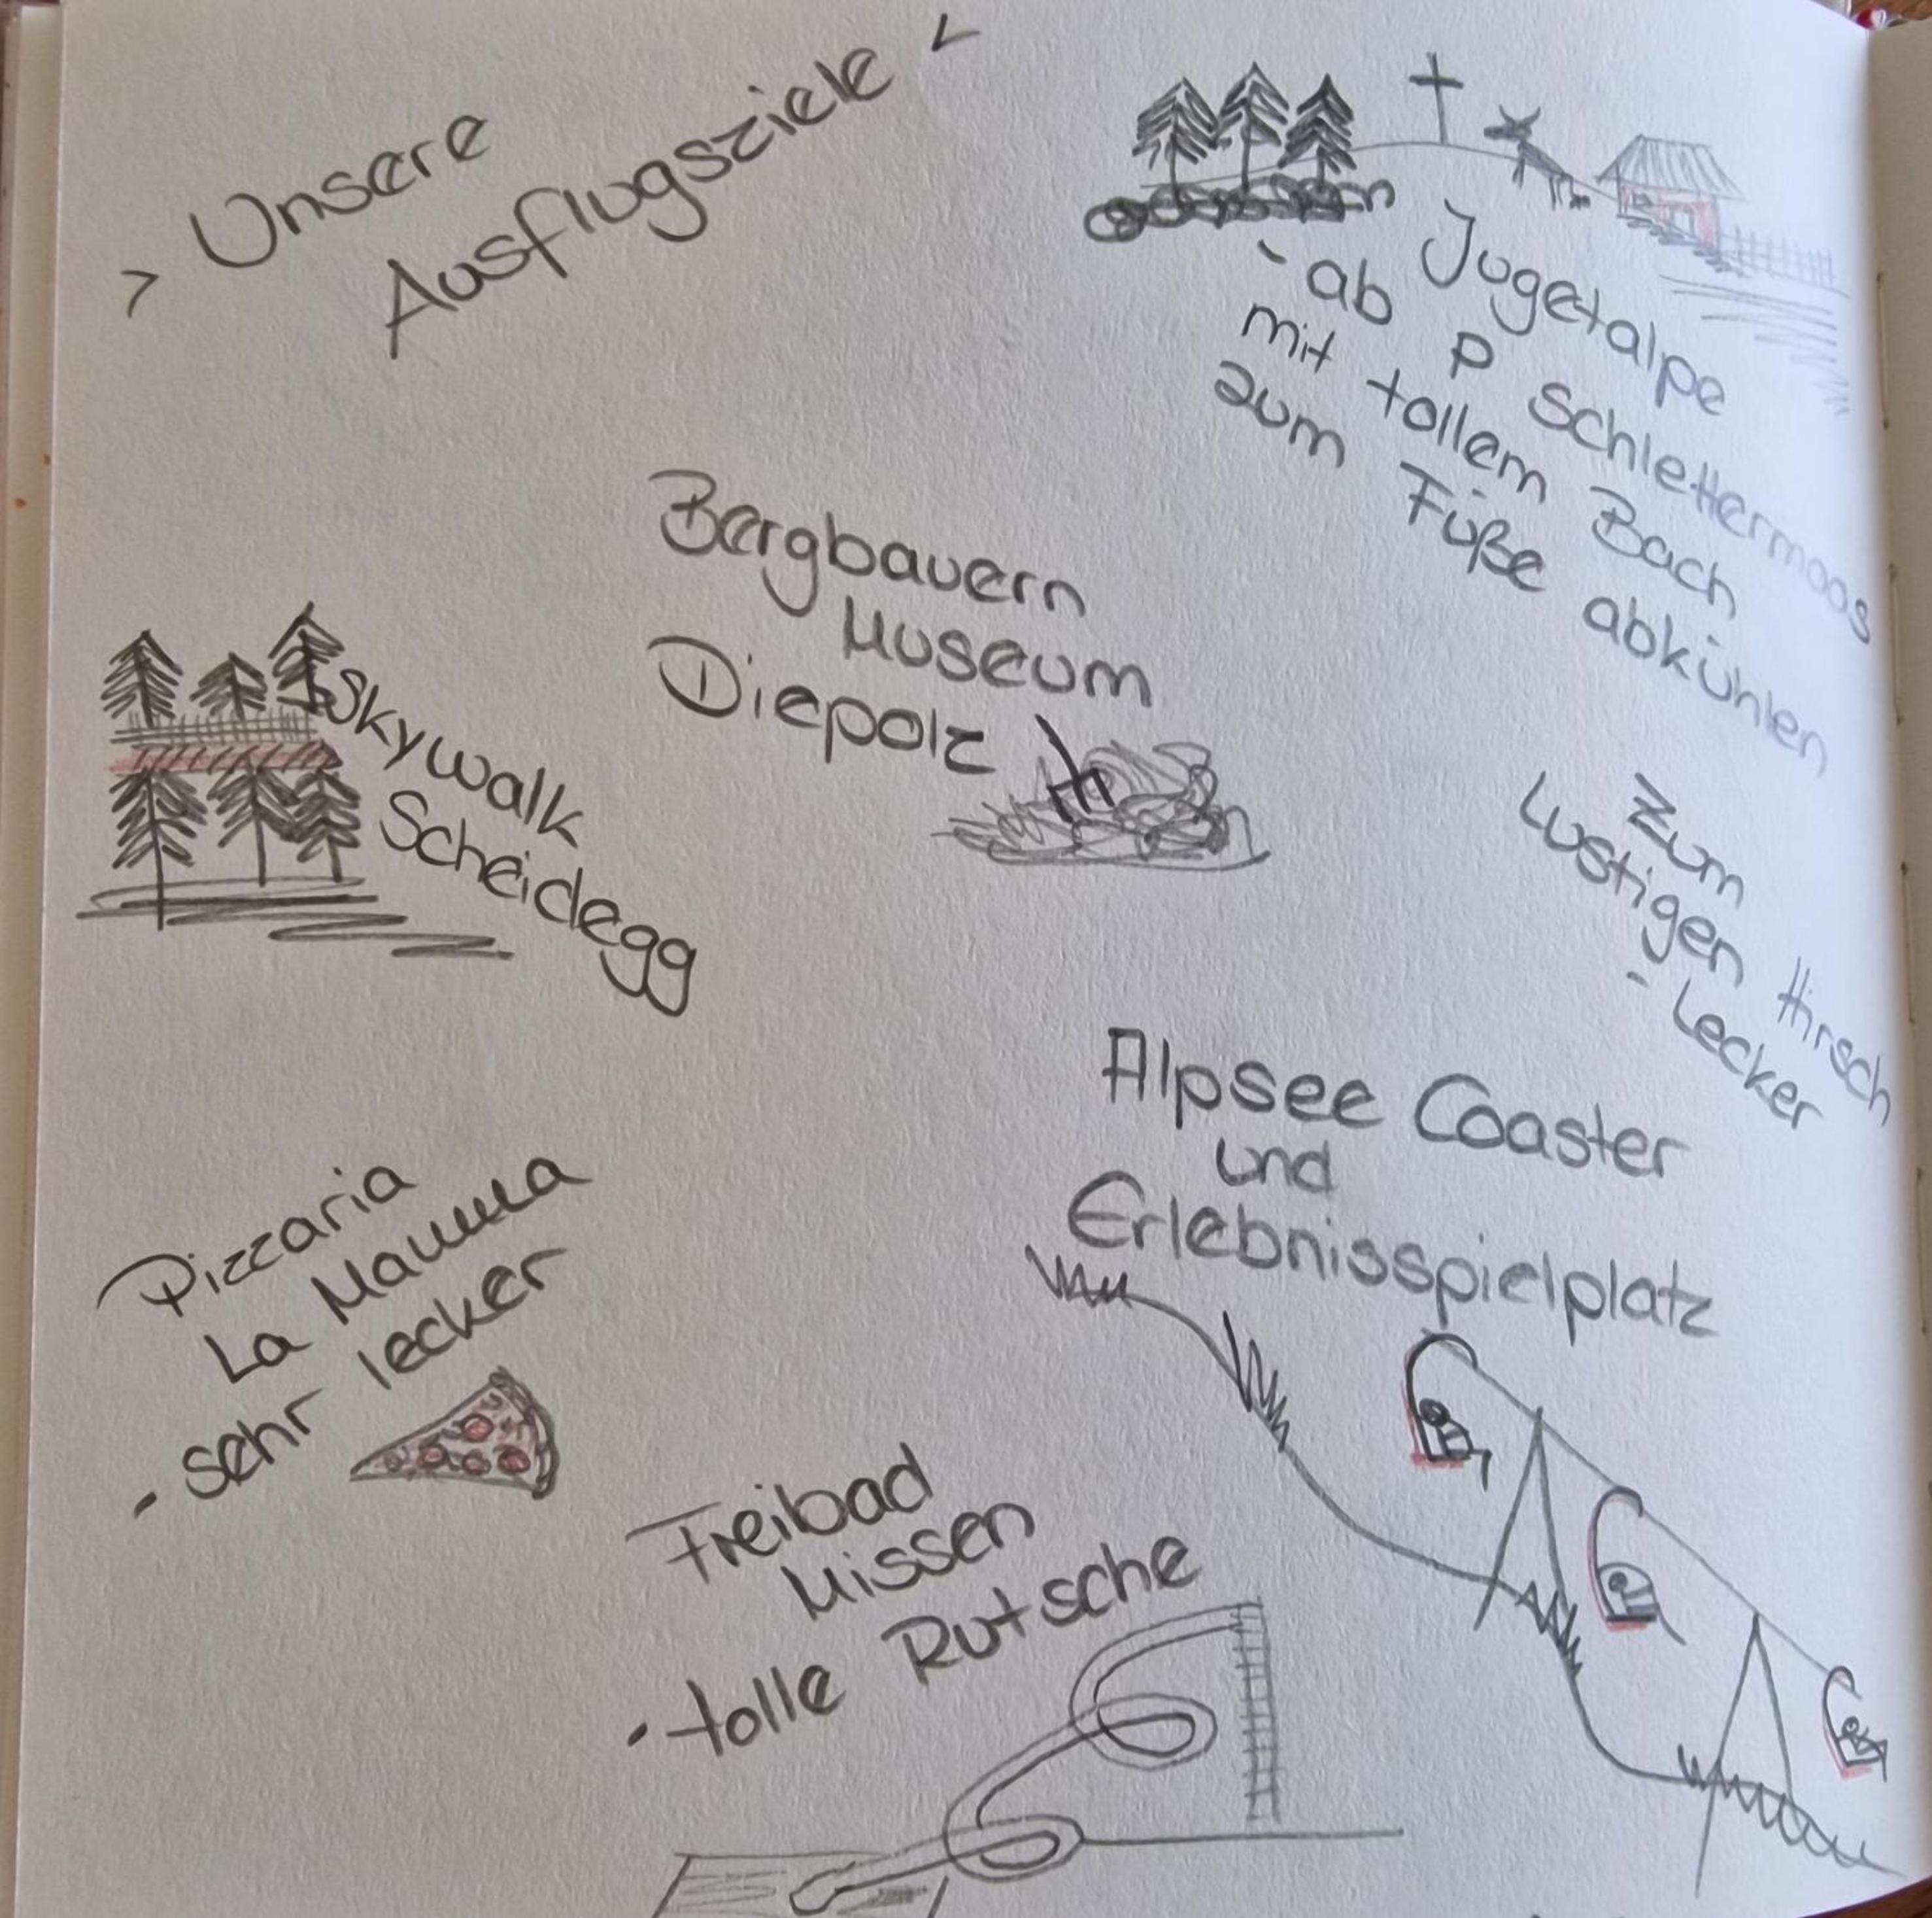 > Unsere
Ausflugsziele <
Jugetalpe
- ab P Schlettermoos
mit tollem Bach
zum Füße abkühlen
Bergbauern
Museum
Diepolz
Skywalk
Scheidegg
Zum
Lustigen Hirsch
- Lecker
Alpsee Coaster
und
Erlebnisspielplatz
Pizzaria
La Mamma
- sehr lecker
Freibad
Missen
- tolle Rutsche